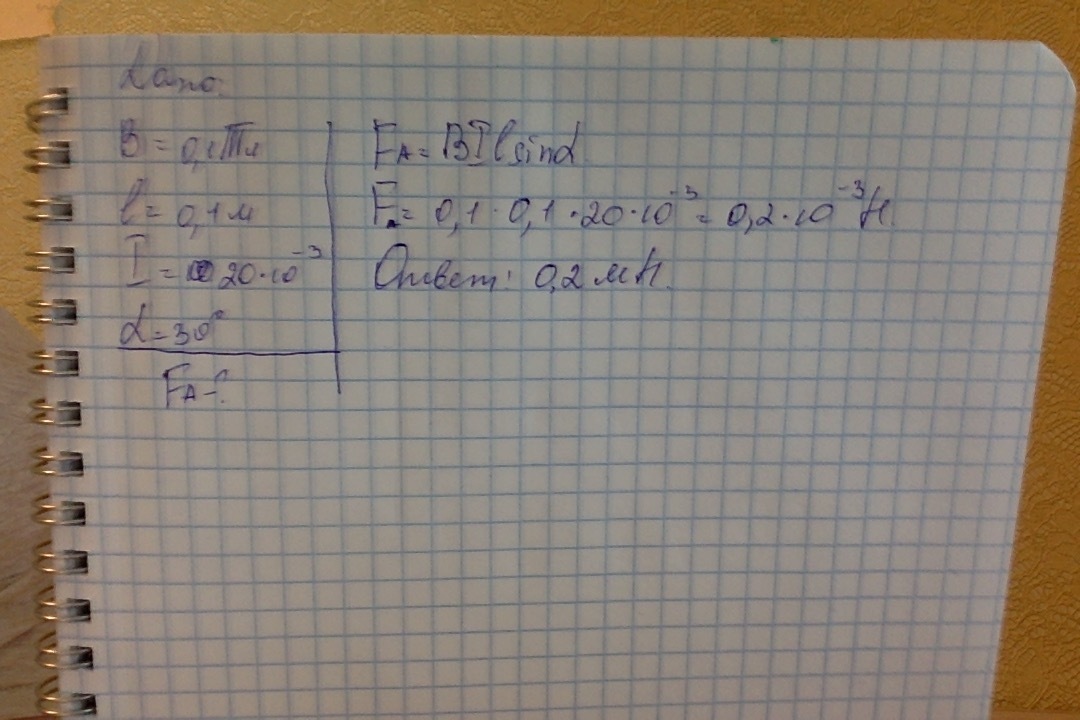 Дано:
B = 0,1Тл
l = 0,1м
I = 20·10⁻³
α = 30°
Fᴀ-?
Fᴀ = BIlsinα
Fᴀ = 0,1·0,1·20·10⁻³ = 0,2·10⁻³Н.
Ответ: 0,2 мН.